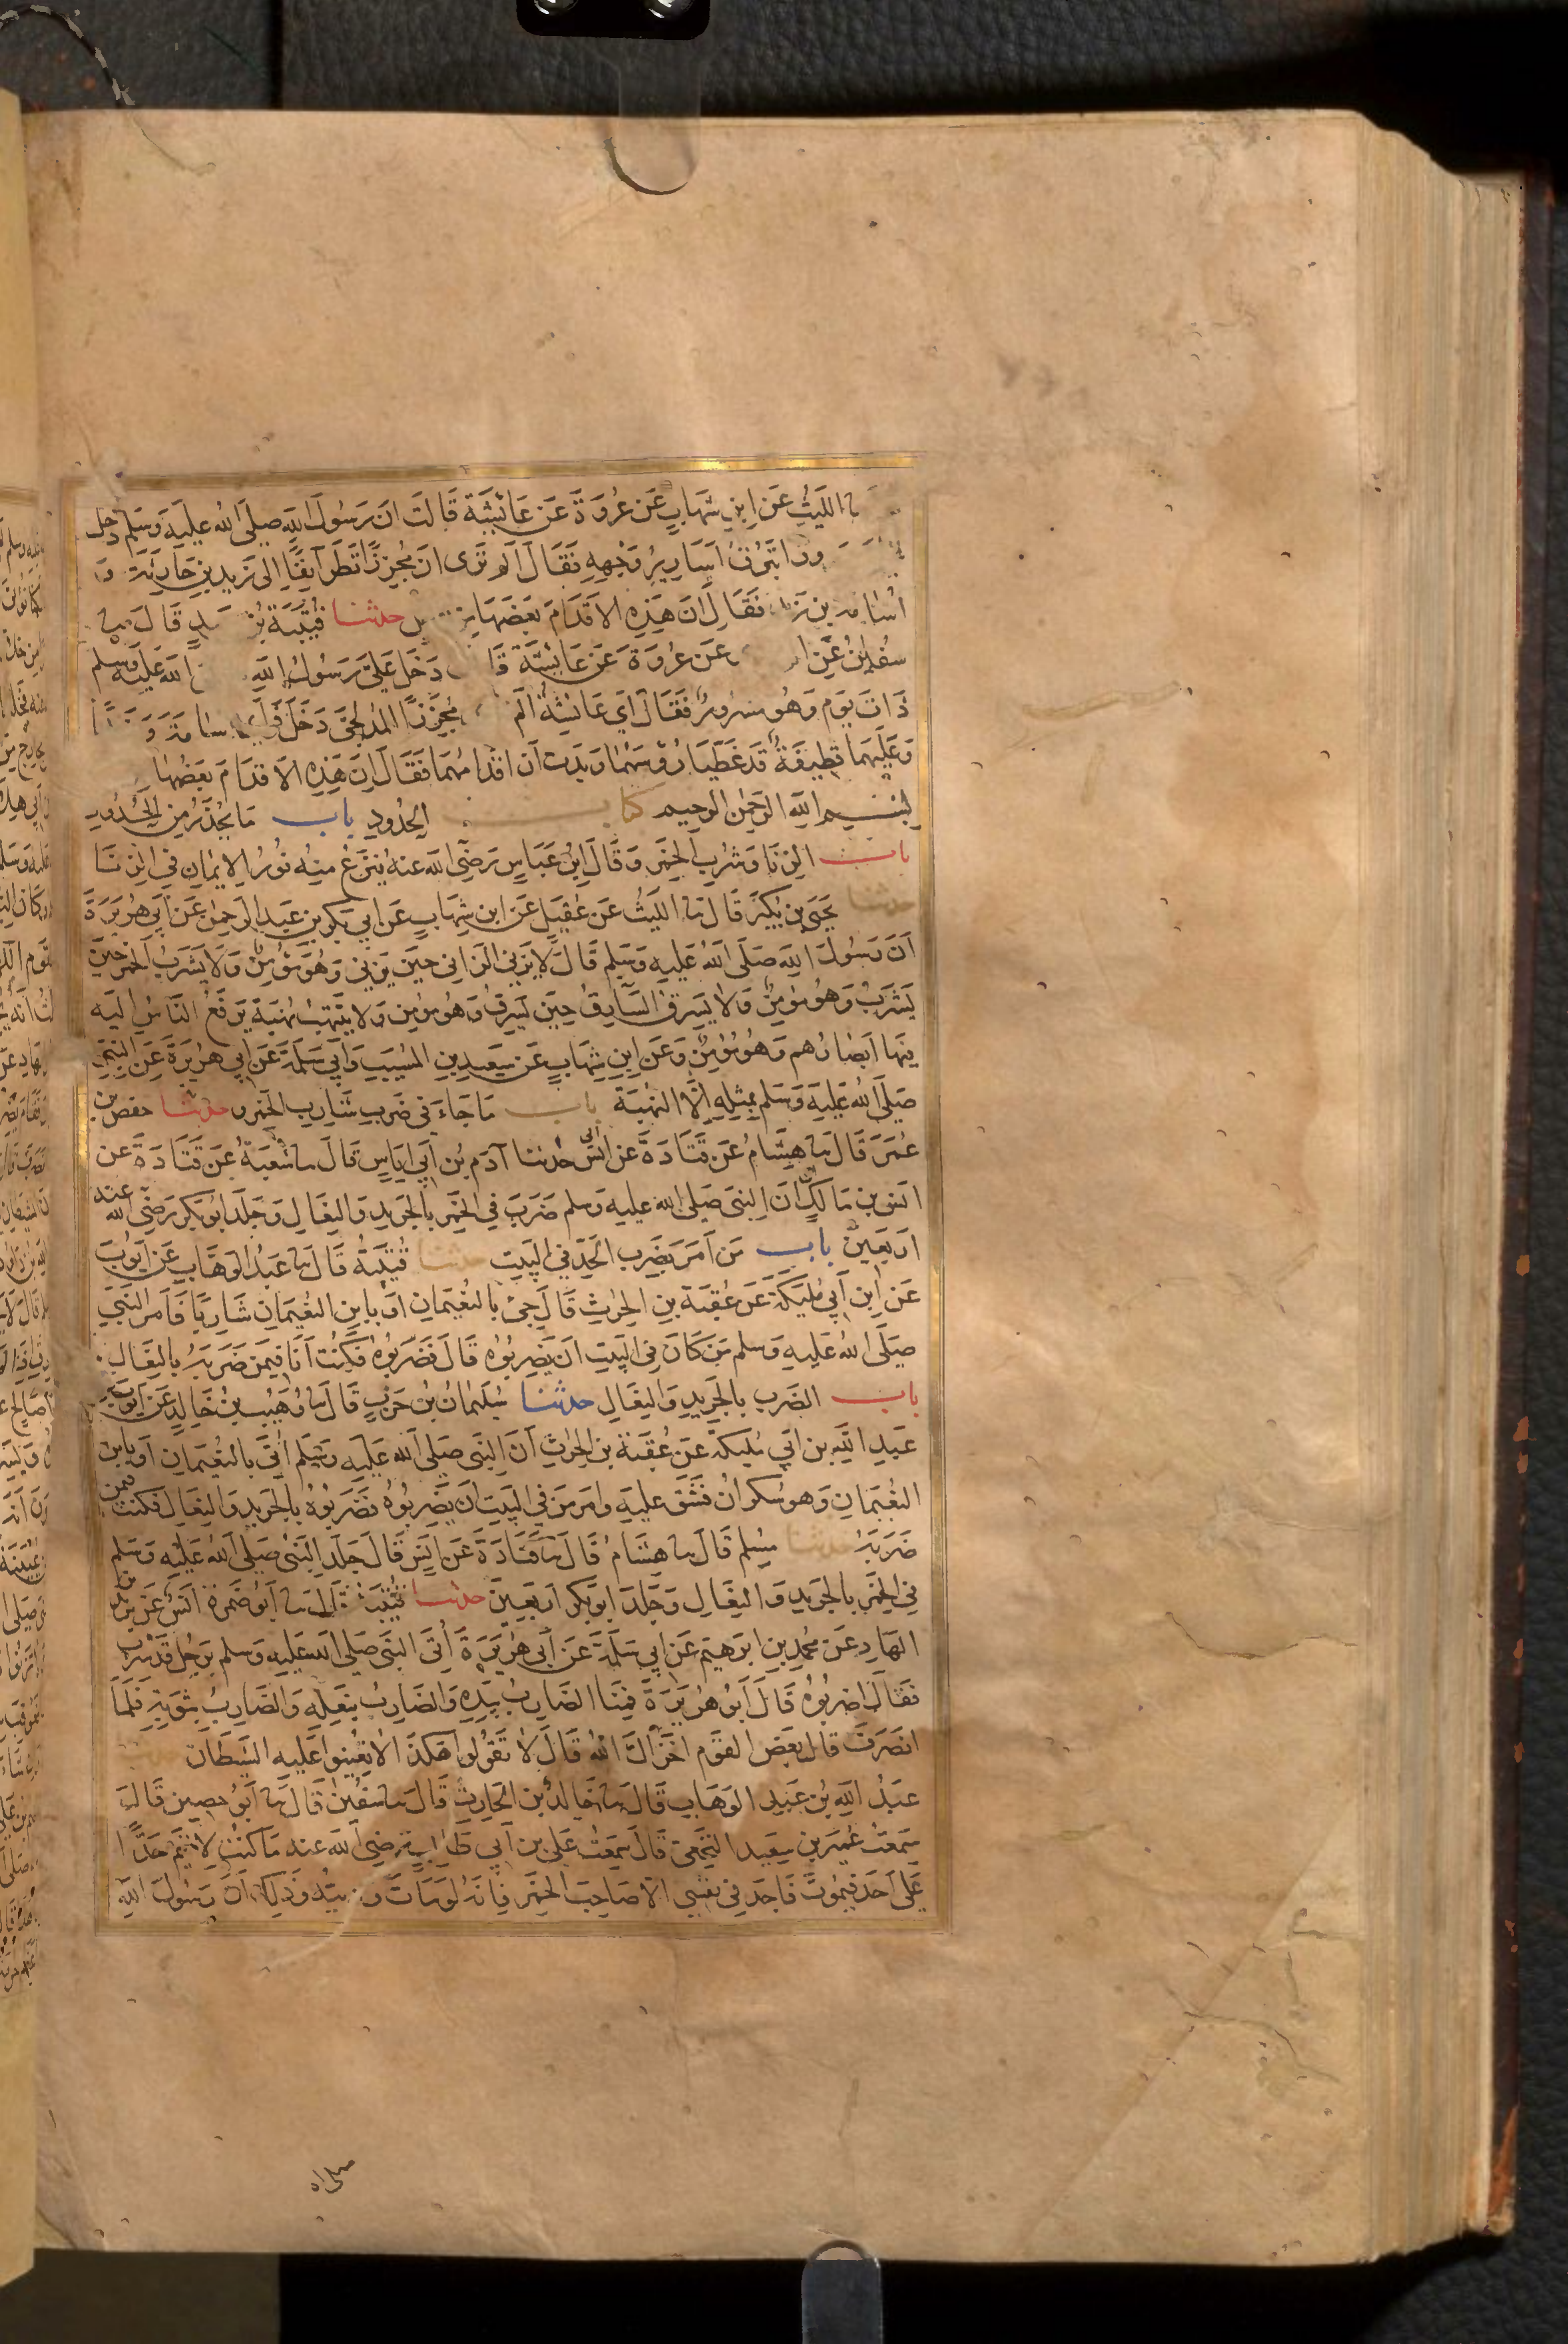 نا الليث عن ابن شهاب عن عروة عن عائشة قالت ان رسول الله صلى الله عليه وسلم دخل
تبرق اسارير وجهه فقال الم ترى ان مجززا نظر آنفا الى زيد بن حارثة و
اسامة بن فقال ان هذه الاقدام بعضها حدثنا قتيبة بن قال نا
سفين عن عن عروة عن عائشة دخل على رسول الله الله عليه وسلم
ذات يوم وهو مسرور فقال اي عائشة الم مجززا المدلجي دخل
وعليهما قطيفة قد غطيا رؤسهما وبدت اقدامهما فقال ان هذه الاقدام بعضها
بسم الله الرحمن الرحيم كتاب الحدود باب ما يحذر من الحدود
باب الزنا وشرب الخمر وقال ابن عباس رضى الله عنه ينزع منه نور الايمان في الزنا
حدثنا يحيى بن بكير قال نا الليث عن عقيل عن ابن شهاب عن ابي بكر بن عبد الرحمن عن ابي هريرة
ان رسول الله صلى الله عليه وسلم قال لا يزني الزاني حين يزني وهو مؤمن ولا يشرب الخمر حين
يشرب وهو مؤمن ولا يسرق السارق حين يسرق وهو مؤمن ولا ينتهب نهبة يرفع الناس اليه
فيها ابصارهم وهو مؤمن وعن ابن شهاب عن سعيد بن المسيب وابي سلمة عن ابي هريرة عن النبي
صلى الله عليه وسلم بمثله الا النهبة باب ما جاء في ضرب شارب الخمر حدثنا حفص بن
عمر قال نا هشام عن قتادة عن انس حدثنا آدم بن ابي اياس قال نا شعبة عن قتادة عن
انس بن مالك ان النبي صلى الله عليه وسلم ضرب في الخمر بالجريد والنعال وجلد ابو بكر رضى الله عنه
اربعين باب من امر بضرب الحد في البيت حدثنا قتيبة قال نا عبد الوهاب عن ايوب
عن ابن ابي مليكة عن عقبة بن الحرث قال جئ بالنعيمان او بابن النعيمان شاربا فامر النبي
صلى الله عليه وسلم من كان في البيت ان يضربوه قال فضربوه فكنت انا فيمن ضربه بالنعال
باب الضرب بالجريد والنعال حدثنا سليمان بن حرب قال نا وهيب بن خالد عن ايوب عن
عبد الله بن ابي مليكة عن عقبة بن الحرث ان النبي صلى الله عليه وسلم أتي بالنعيمان او بابن
النعيمان وهو سكران فشق عليه وامر من في البيت ان يضربوه فضربوه بالجريد والنعال فكنت فيمن
ضربه حدثنا مسلم قال نا هشام قال نا قتادة عن انس قال جلد النبي صلى الله عليه وسلم
في الخمر بالجريد والنعال وجلد ابو بكر اربعين حدثنا قتيبة قال نا ابو ضمرة انس عن يزيد بن
الهاد عن محمد بن ابرهيم عن ابي سلمة عن ابي هريرة أتى النبي صلى الله عليه وسلم برجل قد شرب
فقال اضربوه قال ابو هريرة فمنا الضارب بيده والضارب بنعله والضارب بثوبه فلما
انصرف قال بعض القوم اخزاك الله قال لا تقولوا هكذا لا تعينوا عليه الشيطان
عبد الله بن عبد الوهاب قال نا خالد بن الحارث قال نا سفين قال نا ابو حصين قال
سمعت عمير بن سعيد النخعي قال سمعت علي بن ابي طالب رضى الله عنه ما كنت لاقيم حدا
على احد فيموت فاجد في نفسي الا صاحب الخمر فانه لو مات وديته وذلك ان رسول الله